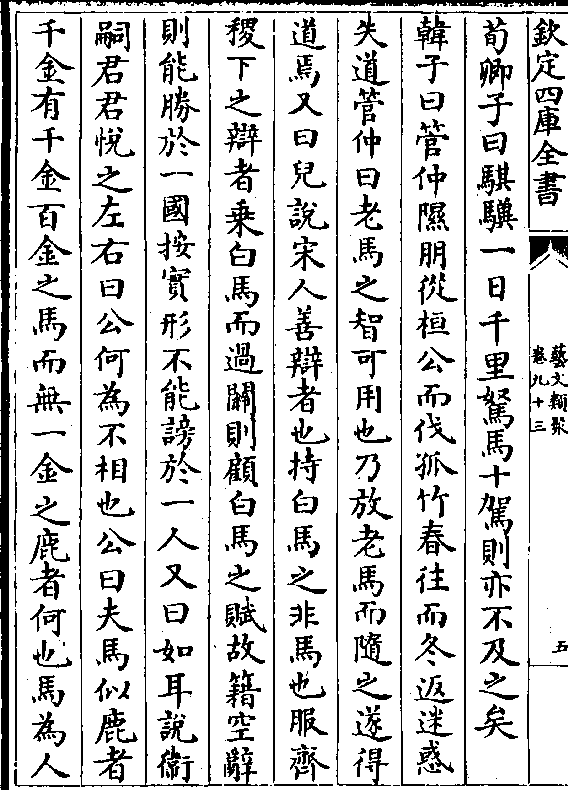 欽定四庫全書
藝文類聚
卷九十三
五
荀卿子曰騏驥一日千里駑馬十駕則亦不及之矣
韓子曰管仲隰朋從桓公而伐孤竹春往而冬返迷惑
失道管仲曰老馬之智可用也乃放老馬而隨之遂得
道焉又曰兒說宋人善辯者也持白馬之非馬也服齊
稷下之辯者乗白馬而過關則顧白馬之賦故籍空辭
則能勝於一國按實形不能謗於一人又曰如耳說衞
嗣君君悅之左右曰公何為不相也公曰夫馬似鹿者
千金有千金百金之馬而無一金之鹿者何也馬為人